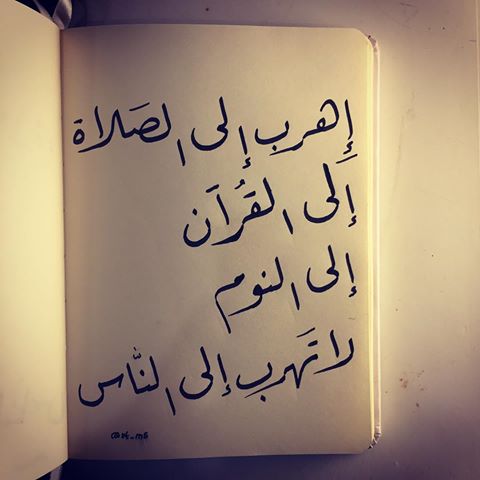 إِهرب إلى الصَلاة
إَلى القُرآن
إلى النوم
لا تَهرب إلى النّاس